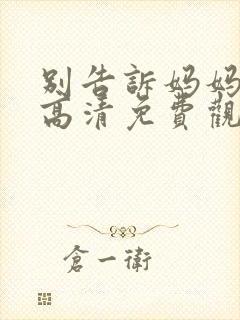 別告訴媽媽
高清免費觀
倉一衛